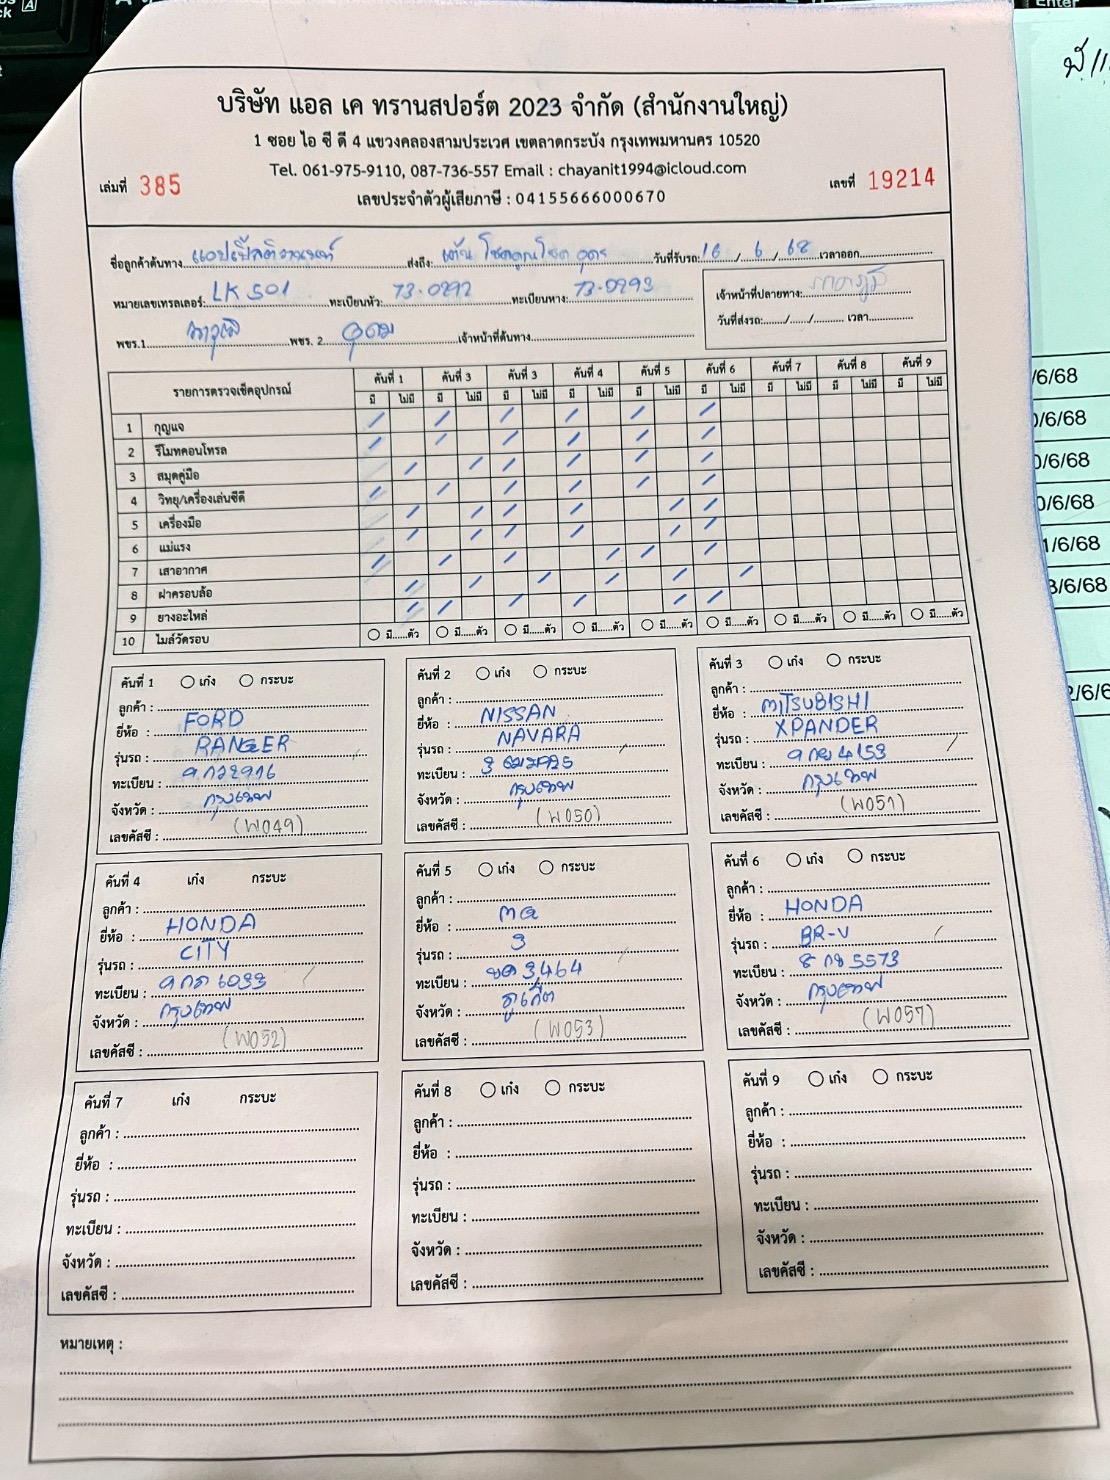 บริษัท แอล เค ทรานสปอร์ต 2023 จำกัด (สำนักงานใหญ่)
1 ซอย ไอ ซี ดี 4 แขวงคลองสามประเวศ เขตลาดกระบัง กรุงเทพมหานคร 10520
Tel. 061-975-9110, 087-736-557 Email : chayanit1994@icloud.com
เล่มที่ 385 เลขที่ 19214
เลขประจำตัวผู้เสียภาษี : 04155666000670
ชื่อลูกค้าต้นทาง ส่งถึง: วันที่รับรถ: 16 / 6 / 68 เวลาออก
หมายเลขเทรลเลอร์: LK 501 ทะเบียนหัว: 73-0292 ทะเบียนหาง: 73-0293 เจ้าหน้าที่ปลายทาง:
พขร.1 พขร. 2 อุดม เจ้าหน้าที่ต้นทาง วันที่ส่งรถ: / / เวลา
รายการตรวจเช็คอุปกรณ์ คันที่ 1 คันที่ 3 คันที่ 3 คันที่ 4 คันที่ 5 คันที่ 6 คันที่ 7 คันที่ 8 คันที่ 9
มี ไม่มี มี ไม่มี มี ไม่มี มี ไม่มี มี ไม่มี มี ไม่มี มี ไม่มี มี ไม่มี มี ไม่มี
1 กุญแจ
2 รีโมทคอนโทรล
3 สมุดคู่มือ
4 วิทยุ/เครื่องเล่นซีดี
5 เครื่องมือ
6 แม่แรง
7 เสาอากาศ
8 ฝาครอบล้อ
9 ยางอะไหล่
10 ไมล์วัดรอบ มี.....ตัว มี.....ตัว มี.....ตัว มี.....ตัว มี.....ตัว มี.....ตัว มี.....ตัว มี.....ตัว มี.....ตัว
คันที่ 1 เก๋ง กระบะ
ลูกค้า :
ยี่ห้อ : FORD
รุ่นรถ : RANGER
ทะเบียน :
จังหวัด : กรุงเทพ
เลขคัสซี : (W049)
คันที่ 2 เก๋ง กระบะ
ลูกค้า :
ยี่ห้อ : NISSAN
รุ่นรถ : NAVARA
ทะเบียน :
จังหวัด : กรุงเทพ
เลขคัสซี : (W050)
คันที่ 3 เก๋ง กระบะ
ลูกค้า :
ยี่ห้อ : MITSUBISHI
รุ่นรถ : XPANDER
ทะเบียน : 4153
จังหวัด : กรุงเทพ
เลขคัสซี : (W051)
คันที่ 4 เก๋ง กระบะ
ลูกค้า :
ยี่ห้อ : HONDA
รุ่นรถ : CITY
ทะเบียน : 6033
จังหวัด : กรุงเทพ
เลขคัสซี : (W052)
คันที่ 5 เก๋ง กระบะ
ลูกค้า :
ยี่ห้อ : MG
รุ่นรถ : 3
ทะเบียน : 3464
จังหวัด : ภูเก็ต
เลขคัสซี : (W053)
คันที่ 6 เก๋ง กระบะ
ลูกค้า :
ยี่ห้อ : HONDA
รุ่นรถ : BR-V
ทะเบียน : 5573
จังหวัด : กรุงเทพ
เลขคัสซี : (W057)
คันที่ 7 เก๋ง กระบะ
ลูกค้า :
ยี่ห้อ :
รุ่นรถ :
ทะเบียน :
จังหวัด :
เลขคัสซี :
คันที่ 8 เก๋ง กระบะ
ลูกค้า :
ยี่ห้อ :
รุ่นรถ :
ทะเบียน :
จังหวัด :
เลขคัสซี :
คันที่ 9 เก๋ง กระบะ
ลูกค้า :
ยี่ห้อ :
รุ่นรถ :
ทะเบียน :
จังหวัด :
เลขคัสซี :
หมายเหตุ :
/6/68
0/6/68
0/6/68
0/6/68
1/6/68
3/6/68